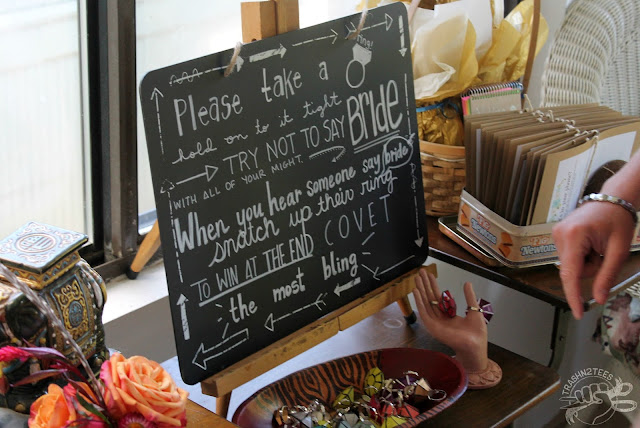 Please take a ring!
hold on to it tight
TRY NOT TO SAY BRIDE
WITH ALL OF YOUR MIGHT.
When you hear someone say bride
snatch up their ring
TO WIN AT THE END COVET
the most bling
Newtons
TRASHN2TEES